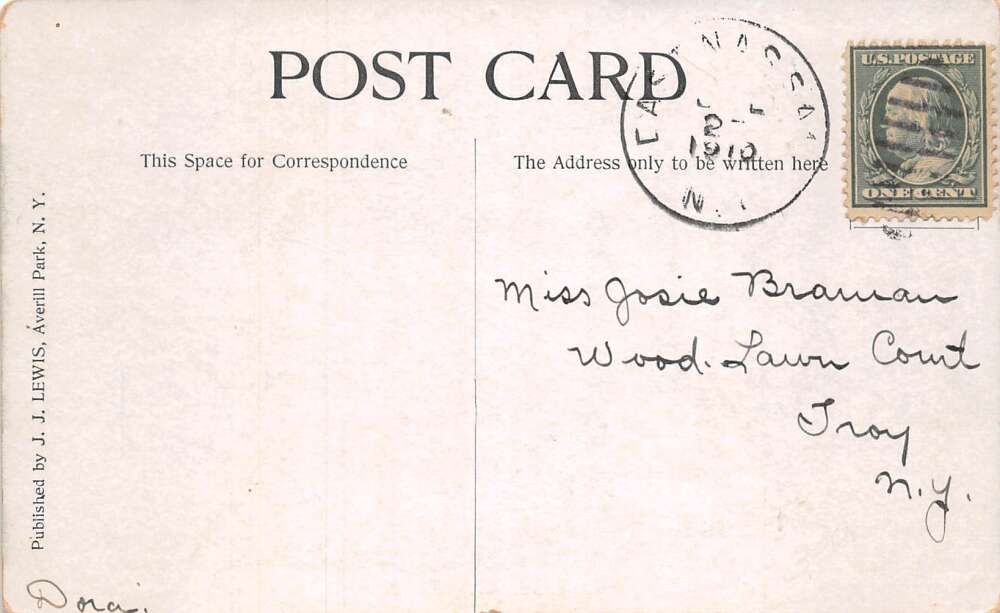 POST CARD
This Space for Correspondence
The Address only to be written here
U.S. POSTAGE
ONE CENT
2
1910
N.Y.
Miss Josie Braman
Wood-Lawn Court
Troy
N.Y.
Published by J. J. LEWIS, Averill Park, N. Y.
Dora.